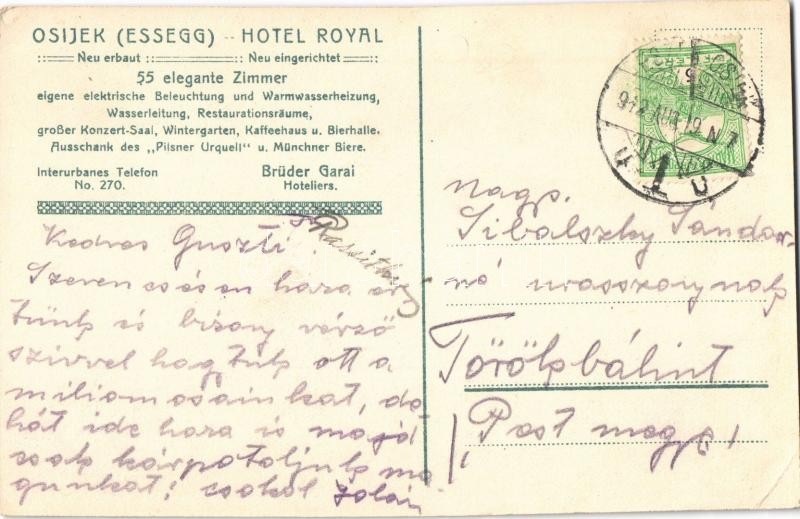 OSIJEK (ESSEGG) -- HOTEL ROYAL
Neu erbaut Neu eingerichtet
55 elegante Zimmer
eigene elektrische Beleuchtung und Warmwasserheizung,
Wasserleitung, Restaurationsräume,
großer Konzert-Saal, Wintergarten, Kaffeehaus u. Bierhalle.
Ausschank des „Pilsner Urquell" u. Münchner Biere.
Interurbanes Telefon
No. 270.
Brüder Garai
Hoteliers.
Kedves Guszti!
Szerencsésen haza ér
tünk és bizony vérző
szivvel hagtuk ott a
miliomosainkat, de
hát ide haza is majd
csak kárpótoljuk ma
gunkat! csokol Zolán
Nags.
Sibalszky Sándor-
né urasszonynak
Törökbálint
(Pest megye)